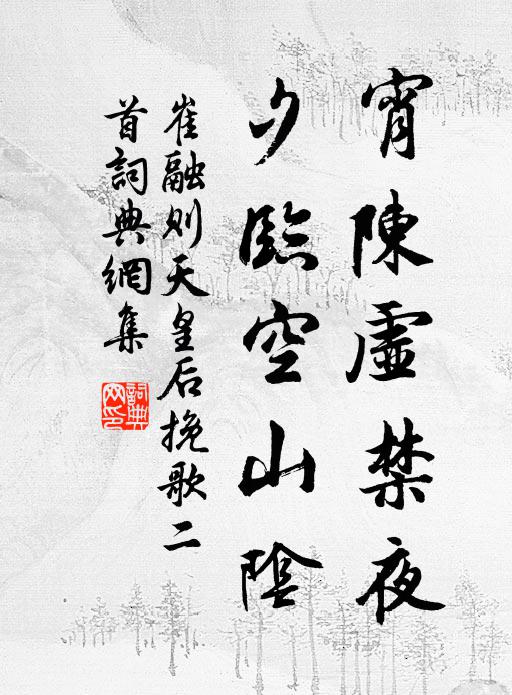 宵陳虛禁夜
夕臨空山陰
崔融則天皇后挽歌二
首詞典網集
詞典
网印